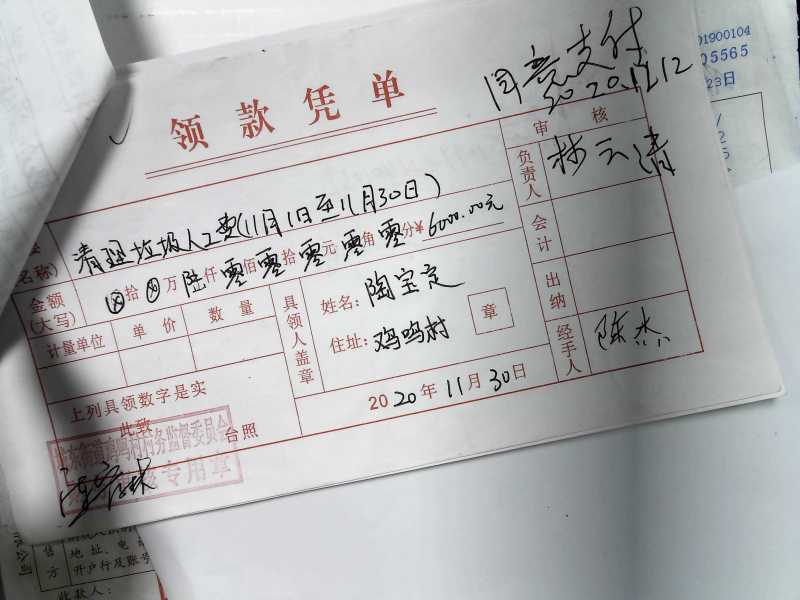 同意支付
2020.12.12
领款凭单
审核
负责人
林云清
名称)
清理垃圾人工费(11月1日至11月30日)
金额
(大写)
⊗拾⊗万陆仟零佰零拾零元零角零分¥6000.00元
会计
计量单位 单价 数量
具领人盖章
姓名: 陶宝定
住址: 鸡鸣村
章
出纳
经手人
陈杰
上列具领数字是实
此致
台照
2020年11月30日
街道鸡鸣村村务监督委员会
专用章
01900104
05565
23日
售
方
地址、电
开户行及账号
收款人: